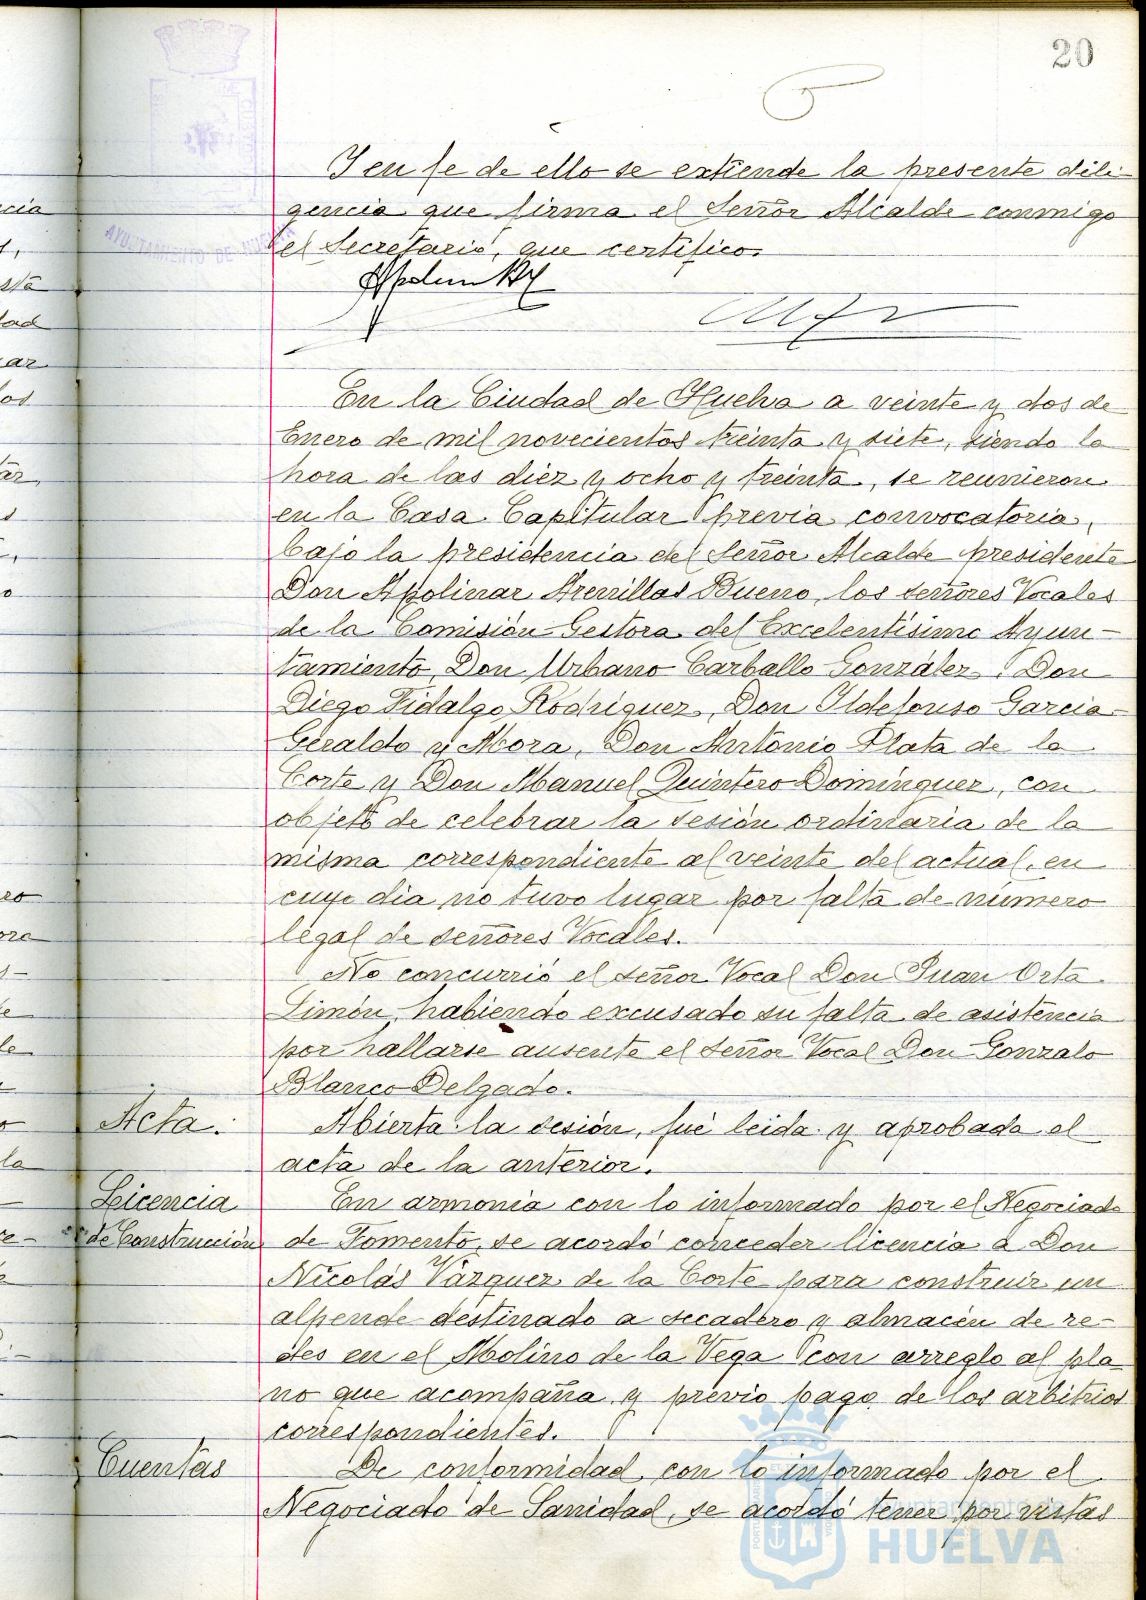 20
Y en fe de ello se extiende la presente dili-
gencia que firma el Señor Alcalde conmigo
el Secretario, que certifico.
En la Ciudad de Huelva a veinte y dos de
Enero de mil novecientos treinta y siete, siendo la
hora de las diez y ocho y treinta, se reunieron
en la Casa Capitular previa convocatoria,
bajo la presidencia del Señor Alcalde presidente
Don Apolinar Arenillas Bueno, los señores Vocales
de la Comisión Gestora del Excelentísimo Ayun-
tamiento, Don Urbano Carballo González, Don
Diego Fidalgo Rodríguez, Don Ildefonso Garcia-
Geraldo y Mora, Don Antonio Plata de la
Corte y Don Manuel Quintero Domínguez, con
objeto de celebrar la sesión ordinaria de la
misma correspondiente al veinte del actual, en
cuyo dia no tuvo lugar por falta de número
legal de señores Vocales.
No concurrió el señor Vocal Don Juan Orta
Limón, habiendo excusado su falta de asistencia
por hallarse ausente el señor Vocal Don Gonzalo
Blanco Delgado.
Acta.
Abierta la sesión, fué leida y aprobada el
acta de la anterior.
Licencia
de Construcción
En armonia con lo informado por el Negociado
de Fomento, se acordó conceder licencia a Don
Nicolás Vázquez de la Corte para construir un
alpende destinado a secadero y almacén de re-
des en el Molino de la Vega con arreglo al pla-
no que acompaña y previo pago de los arbitrios
correspondientes.
Cuentas
De conformidad con lo informado por el
Negociado de Sanidad, se acordó tener por vistas
Ayuntamiento de
HUELVA